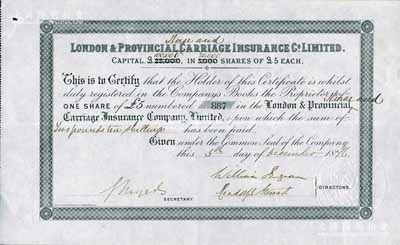 Horse and
LONDON & PROVINCIAL CARRIAGE INSURANCE Co. LIMITED.
CAPITAL £25,000, IN 5,000 SHARES OF £5 EACH.
This is to Certify that the Holder of this Certificate is whilst
duly registered in the Companys Books the Proprietor of
ONE SHARE of £5 numbered 887 in the London & Provincial
Horse and
Carriage Insurance Company, Limited, upon which the sum of
Two pounds ten shillings has been paid.
Given under the Common Seal of the Company
this 5th day of December 187
William
SECRETARY.
DIRECTORS.